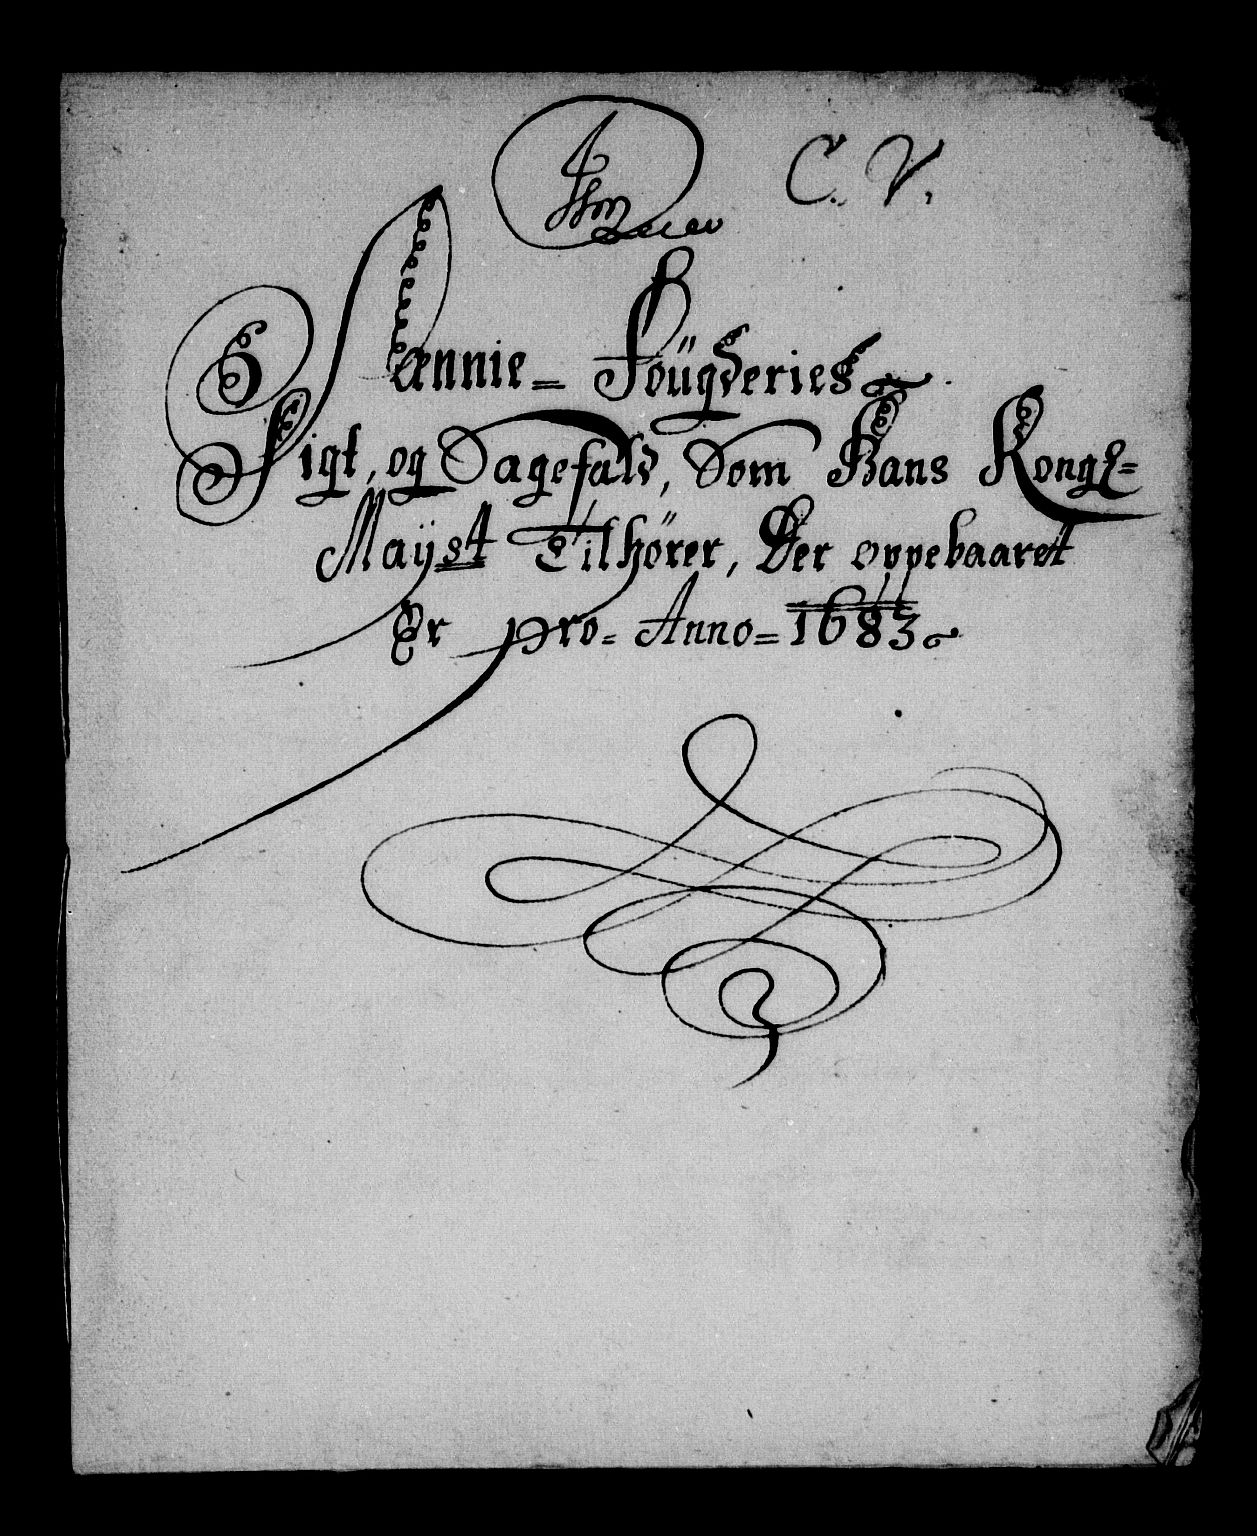 C. V.
Sennie = Foügderies
Sigt, og Sagefald, Som Hans Kongl=
Maÿst Tilhörer, Der oppebaaret
Er pro = Anno = 1683